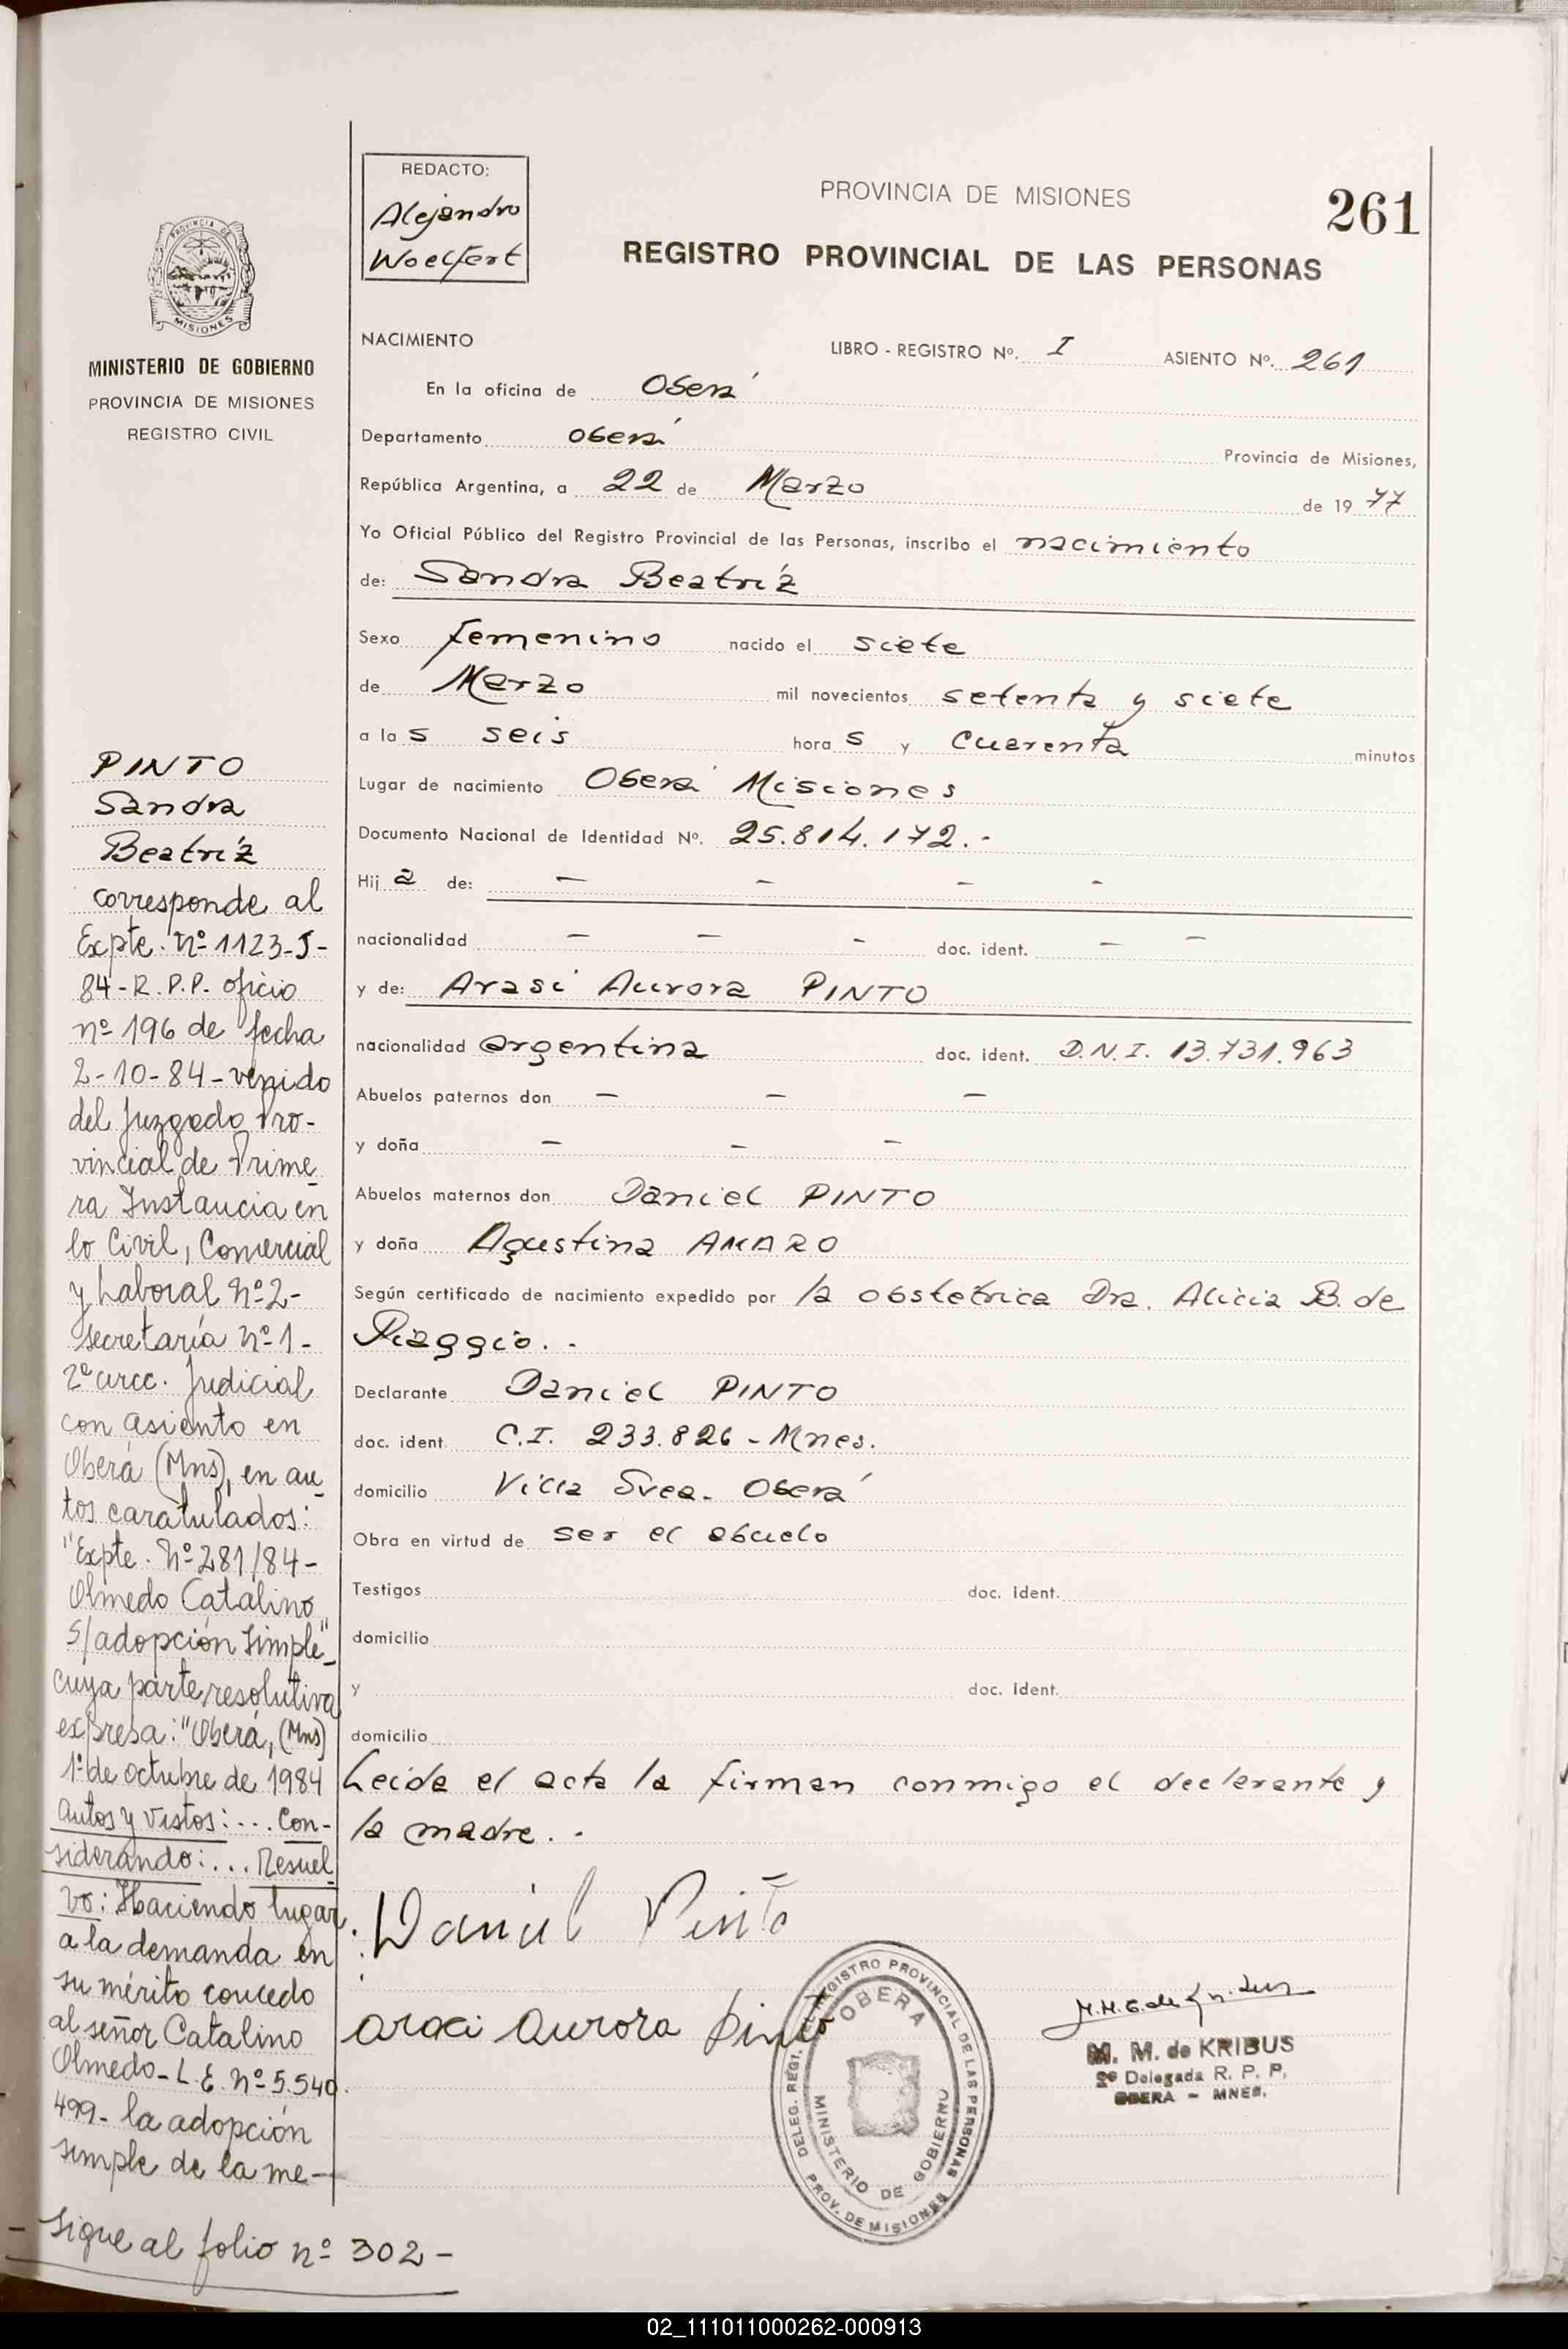 REDACTO:
Alejandro
Woelfert
PROVINCIA DE MISIONES
261
REGISTRO PROVINCIAL DE LAS PERSONAS
PROVINCIA DE
MISIONES
MINISTERIO DE GOBIERNO
PROVINCIA DE MISIONES
REGISTRO CIVIL
NACIMIENTO LIBRO - REGISTRO Nº. I ASIENTO Nº. 261
En la oficina de Oberá
Departamento Oberá Provincia de Misiones,
República Argentina, a 22 de Marzo de 19 77
Yo Oficial Público del Registro Provincial de las Personas, inscribo el nacimiento
de: Sandra Beatríz
Sexo femenino nacido el siete
de Marzo mil novecientos setenta y siete
a la s seis hora s y cuarenta minutos
Lugar de nacimiento Oberá Misiones
Documento Nacional de Identidad Nº. 25.814.172.-
Hij a de: - - - -
nacionalidad - - - doc. ident. - -
y de: Arasi Aurora PINTO
nacionalidad argentina doc. ident. D.N.I. 13.731.963
Abuelos paternos don - - -
y doña - - -
Abuelos maternos don Daniel PINTO
y doña Agustina AMARO
Según certificado de nacimiento expedido por la obstetrica Dra. Alicia B. de
Piaggio. -
Declarante Daniel PINTO
doc. ident. C.I. 233.826 - Mnes.
domicilio Villa Svea. Oberá
Obra en virtud de ser el abuelo
Testigos doc. ident.
domicilio
y doc. ident.
domicilio
Leida el acta la firman conmigo el declarante y
la madre. -
Daniel Pinto
Araci Aurora Pinto
DELEG. REGI. REGISTRO PROVINCIAL DE LAS PERSONAS
OBERA
MINISTERIO DE GOBIERNO
PROV. DE MISIONES
M. M. de KRIBUS
2º Delegada R. P. P.
OBERA - MNES.
PINTO
Sandra
Beatríz
corresponde al
Expte. Nº 1123-J-
84-R.P.P. oficio
nº 196 de fecha
2-10-84- venido
del Juzgado Pro-
vincial de Prime
ra Instancia en
lo Civil, Comercial
y Laboral Nº 2-
Secretaría Nº 1-
2º circ. Judicial
con asiento en
Oberá (Mns), en au
tos caratulados:
"Expte. Nº 281/84-
Olmedo Catalino
S/adopción Simple"_
cuya parte resolutiva
expresa: "Oberá, (Mns)
1º de octubre de 1984
Autos y Vistos:... Con-
siderando:... Resuel
vo: Haciendo lugar
a la demanda en
su mérito concedo
al señor Catalino
Olmedo-L.E. Nº 5.540.
499- la adopción
simple de la me-
- Sigue al folio nº 302-
02_111011000262-000913